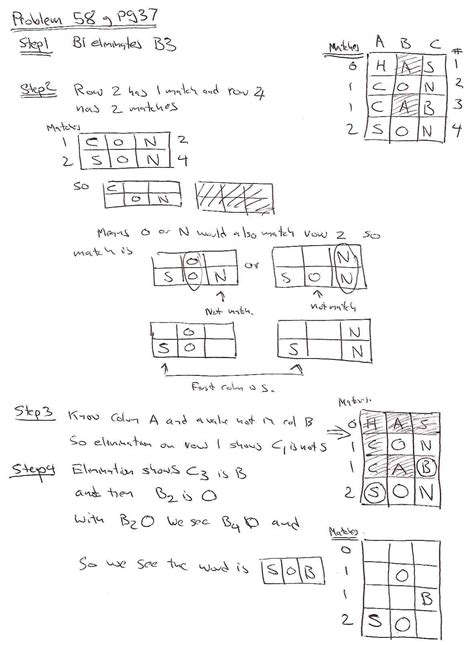 Problem 58 g pg37
Step1 B1 eliminates B3
Matches A B C #
0 H A S 1
1 C O N 2
1 C A B 3
2 S O N 4
Step2 Row 2 has 1 match and row 4
has 2 matches
Matches
1 C O N 2
2 S O N 4
so C
O N
Means O or N would also match row 2 so
match is
O
S O N
or
N
S O N
Not match.
not match
O
S O
N
S N
First colum is S.
Step3 Know column A and a value not in col B
So elimination on row 1 shows C, is not S
Step4 Elimination shows C3 is B
and then B2 is O
With B2O we see B4O and
So we see the word is S O B
Matches.
0 H A S
1 C O N
1 C A B
2 S O N
Matches
0
1 O
1 B
2 S O